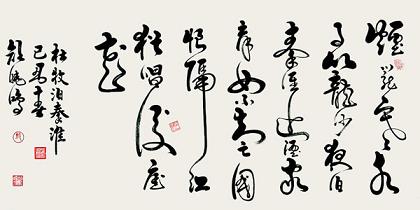 煙籠寒水
月籠沙夜泊
秦淮近酒家
商女不知亡國
恨隔江
猶唱後庭
花
杜牧泊秦淮